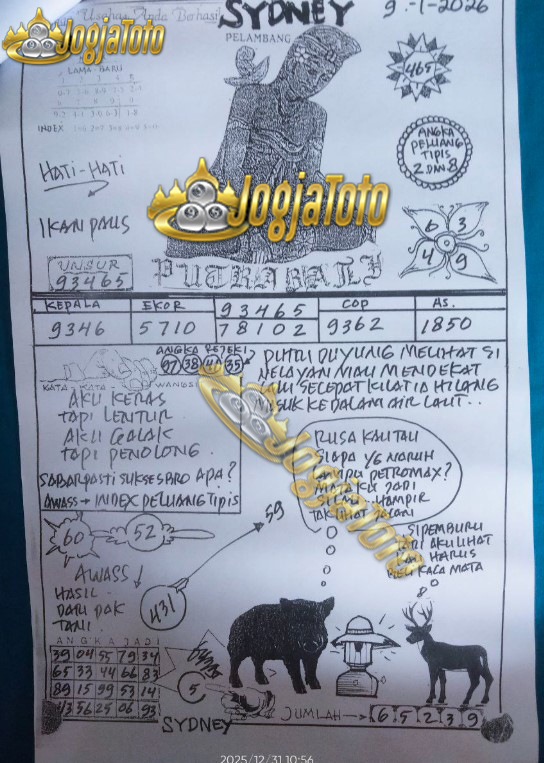 Usaha Anda Berhasil
SYDNEY
9-1-2026
PELAMBANG
JogjaToto
LAMA - BARU
INDEX
465
HATI-HATI
ANGKA
PELUANG
TIPIS
2 DAN 8
IKAN PAUS
JogjaToto
6 3
4 9
UNSUR
93465
PUTRA BALI
KEPALA EKOR 93465 COP AS.
9346 5710 78102 9362 1850
ANGKA REJEKI
97 38 41 35
KATA - KATA - WANGSIT
AKU KERAS
TAPI LENTUR
AKU GALAK
TAPI PENOLONG.
SABAR PASTI SUKSES BRO APA?
AWASS → INDEX PELUANG TIPIS
PUTRI DUYUNG MELIHAT SI
NELAYAN MAU MENDEKAT
SECEPAT KILAT IA HILANG
MASUK KEDALAM AIR LAUT..
JogjaToto
RUSA KAU TAU
SIAPA YG NARUH
LAMPU PETROMAX?
MATA KU JADI
HAMPIR
TAK LIHAT JALAN
SI PEMBURU
TADI AKU LIHAT
KAU HARUS
BELI KACA MATA
60
52
59
AWASS
HASIL
DARI PAK
TANI.
431
ANGKA JADI
39 04 55 79 34
65 33 44 66 83
89 15 99 53 14
43 56 25 06 93
5
SYDNEY
JUMLAH → 6 5 2 3 9
2025/12/31 10:56